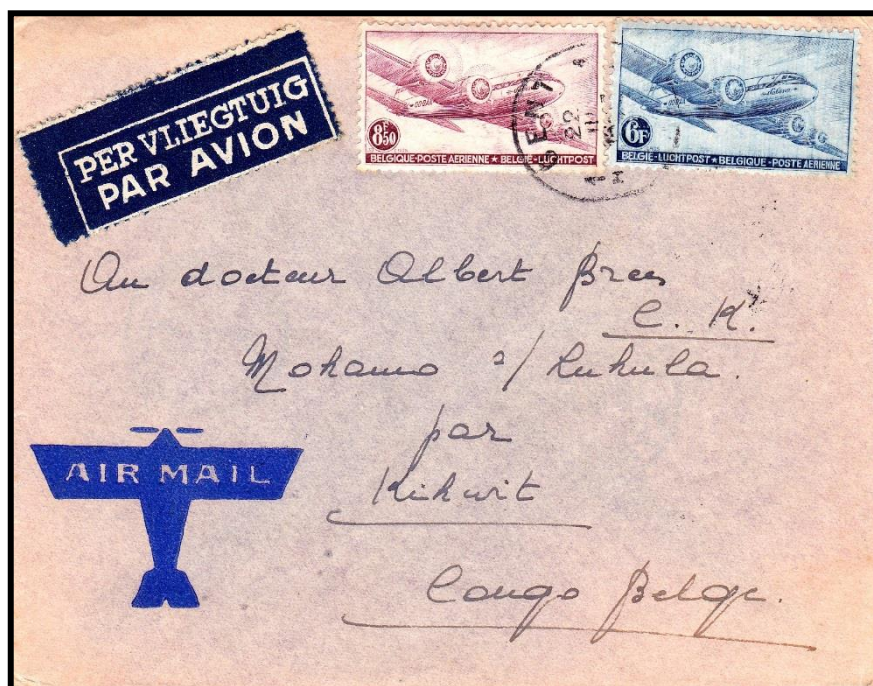 PER VLIEGTUIG
PAR AVION
8F50
BELGIQUE-POSTE AERIENNE ★ BELGIE-LUCHTPOST
6F
BELGIE-LUCHTPOST ★ BELGIQUE-POSTE AERIENNE
GENT
22
Au docteur Albert Brees
C. K.
Mokamo s/ Lukula.
par
Kikwit
Congo Belge.
AIR MAIL